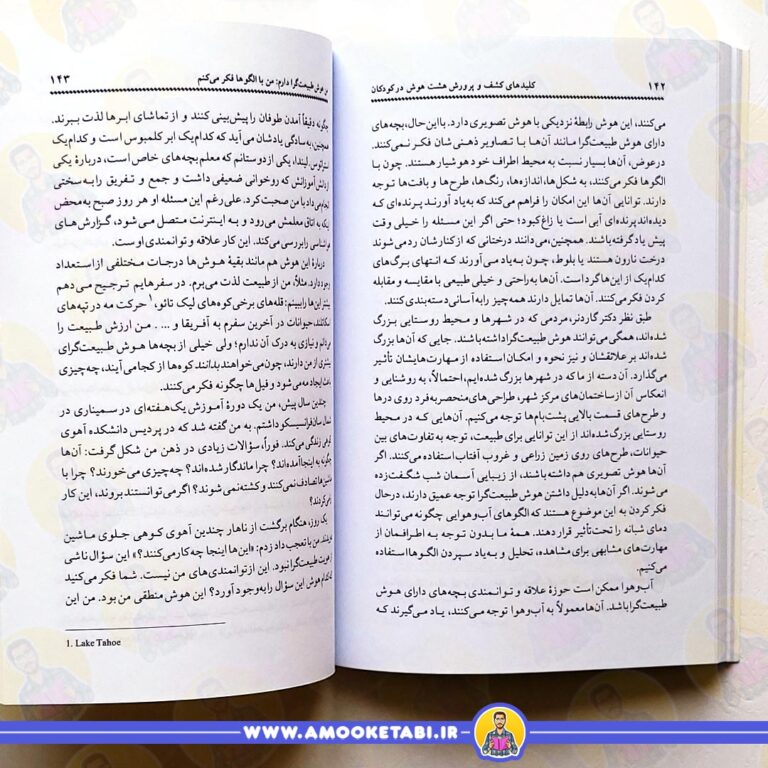 ۱۴۲ کلیدهای کشف و پرورش هشت هوش در کودکان
می‌کنند، این هوش رابطهٔ نزدیکی با هوش تصویری دارد. با این‌حال، بچه‌های
دارای هوش طبیعت‌گرا مانند آن‌ها با تصاویر ذهنی‌شان فکر نمی‌کنند.
درعوض، آن‌ها بسیار نسبت به محیط اطراف خود هوشیار هستند. چون با
الگوها فکر می‌کنند، به شکل‌ها، اندازه‌ها، رنگ‌ها، طرح‌ها و بافت‌ها توجه
دارند. توانایی آن‌ها این امکان را فراهم می‌کند که به‌یاد آورند پرنده‌ای که
دیده‌اند پرنده‌ای آبی است یا زاغ کبود؛ حتی اگر این مسئله را خیلی وقت
پیش یاد گرفته باشند. همچنین، می‌دانند درختانی که از کنارشان رد می‌شوند
درخت نارون هستند یا بلوط، چون به‌یاد می‌آورند که انتهای برگ‌های
کدام‌یک از این‌ها گرد است. آن‌ها به‌راحتی و خیلی طبیعی با مقایسه و مقابله
کردن فکر می‌کنند. آن‌ها تمایل دارند همه‌چیز را به‌آسانی دسته‌بندی کنند.
طبق نظر دکتر گاردنر، مردمی که در شهرها و محیط روستایی بزرگ
شده‌اند، همگی می‌توانند هوش طبیعت‌گرا داشته باشند. جایی که آن‌ها بزرگ
شده‌اند بر علائقشان و نیز نحوه و امکان استفاده از مهارت‌هایشان تأثیر
می‌گذارد. آن دسته از ما که در شهرها بزرگ شده‌ایم، احتمالاً، به روشنایی و
انعکاس آن از ساختمان‌های مرکز شهر، طراحی‌های منحصربه‌فرد روی درها
و طرح‌های قسمت بالایی پشت‌بام‌ها توجه می‌کنیم. آن‌هایی که در محیط
روستایی بزرگ شده‌اند از این توانایی برای طبیعت، توجه به تفاوت‌های بین
حیوانات، طرح‌های روی زمین زراعی و غروب آفتاب استفاده می‌کنند. اگر
آن‌ها هوش تصویری هم داشته باشند، از زیبایی آسمان شب شگفت‌زده
می‌شوند. اگر آن‌ها به‌دلیل داشتن هوش طبیعت‌گرا توجه عمیق دارند، درحال
فکر کردن به این موضوع هستند که الگوهای آب‌وهوایی چگونه می‌توانند
دمای شبانه را تحت‌تأثیر قرار دهند. همهٔ ما بدون توجه به اطرافمان از
مهارت‌های مشابهی برای مشاهده، تحلیل و به‌یاد سپردن الگوها استفاده
می‌کنیم.
آب‌وهوا ممکن است حوزهٔ علاقه و توانمندی بچه‌های دارای هوش
طبیعت‌گرا باشد. آن‌ها معمولاً به آب‌وهوا توجه می‌کنند، یاد می‌گیرند که
هوش طبیعت‌گرا دارم: من با الگوها فکر می‌کنم ۱۴۳
چگونه دقیقاً آمدن طوفان را پیش‌بینی کنند و از تماشای ابرها لذت ببرند.
همچنین، به‌سادگی یادشان می‌آید که کدام‌یک ابر کلمبوس است و کدام‌یک
لیندا، یکی از دوستانم که معلم بچه‌های خاص است، دربارهٔ یکی
از دانش‌آموزانش که روخوانی ضعیفی داشت و جمع و تفریق را به‌سختی
انجام می‌داد با من صحبت کرد. علی‌رغم این مسئله او هر روز صبح به‌محض
اینکه به اتاق معلمش می‌رود و به اینترنت متصل می‌شود، گزارش‌های
هواشناسی را بررسی می‌کند. این کار علاقه و توانمندی اوست.
دربارهٔ این هوش هم مانند بقیهٔ هوش‌ها درجات مختلفی از استعداد
وجود دارد. مثلاً، من از طبیعت لذت می‌برم. در سفرهایم ترجیح می‌دهم
بیشتر این‌ها را ببینم: قله‌های برفی کوه‌های لیک تائو،۱ حرکت مه در تپه‌های
حیوانات در آخرین سفرم به آفریقا و ... . من ارزش طبیعت را
می‌دانم و نیازی به درک آن ندارم؛ ولی خیلی از بچه‌ها هوش طبیعت‌گرای
بیشتری از من دارند، چون می‌خواهند بدانند کوه‌ها از کجا می‌آیند، چه‌چیزی
باعث ایجاد مه می‌شود و فیل‌ها چگونه فکر می‌کنند.
چندین سال پیش، من یک دورهٔ آموزش یک‌هفته‌ای در سمیناری در
شمال سان‌فرانسیسکو داشتم. به من گفته شد که در پردیس دانشکده آهوی
کوهی زندگی می‌کند. فوراً، سؤالات زیادی در ذهن من شکل گرفت: آن‌ها
چگونه به اینجا آمده‌اند؟ چرا ماندگار شده‌اند؟ چه‌چیزی می‌خورند؟ چرا با
ماشین‌ها تصادف نمی‌کنند و کشته نمی‌شوند؟ اگر می‌توانستند بروند، این کار
را می‌کردند؟
یک روز، هنگام برگشت از ناهار چندین آهوی کوهی جلوی ماشین
من با تعجب داد زدم: «این‌ها اینجا چه‌کار می‌کنند؟» این سؤال ناشی
از هویت طبیعت‌گرا نبود. این از توانمندی‌های من نیست. شما فکر می‌کنید
کدام هوش این سؤال را به‌وجود آورد؟ این هوش منطقی من بود. من این
1. Lake Tahoe
WWW.AMOOKETABI.IR